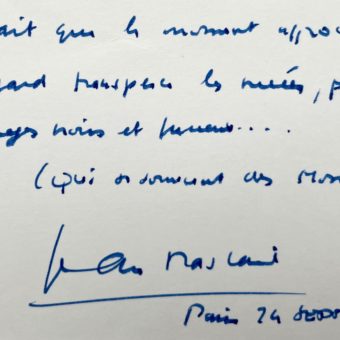 ait que le moment appro
gard transperce les nuées, p
ages noirs et fumeux....
(Qui ordonnent des Mon
Jean
Paris 24 sept